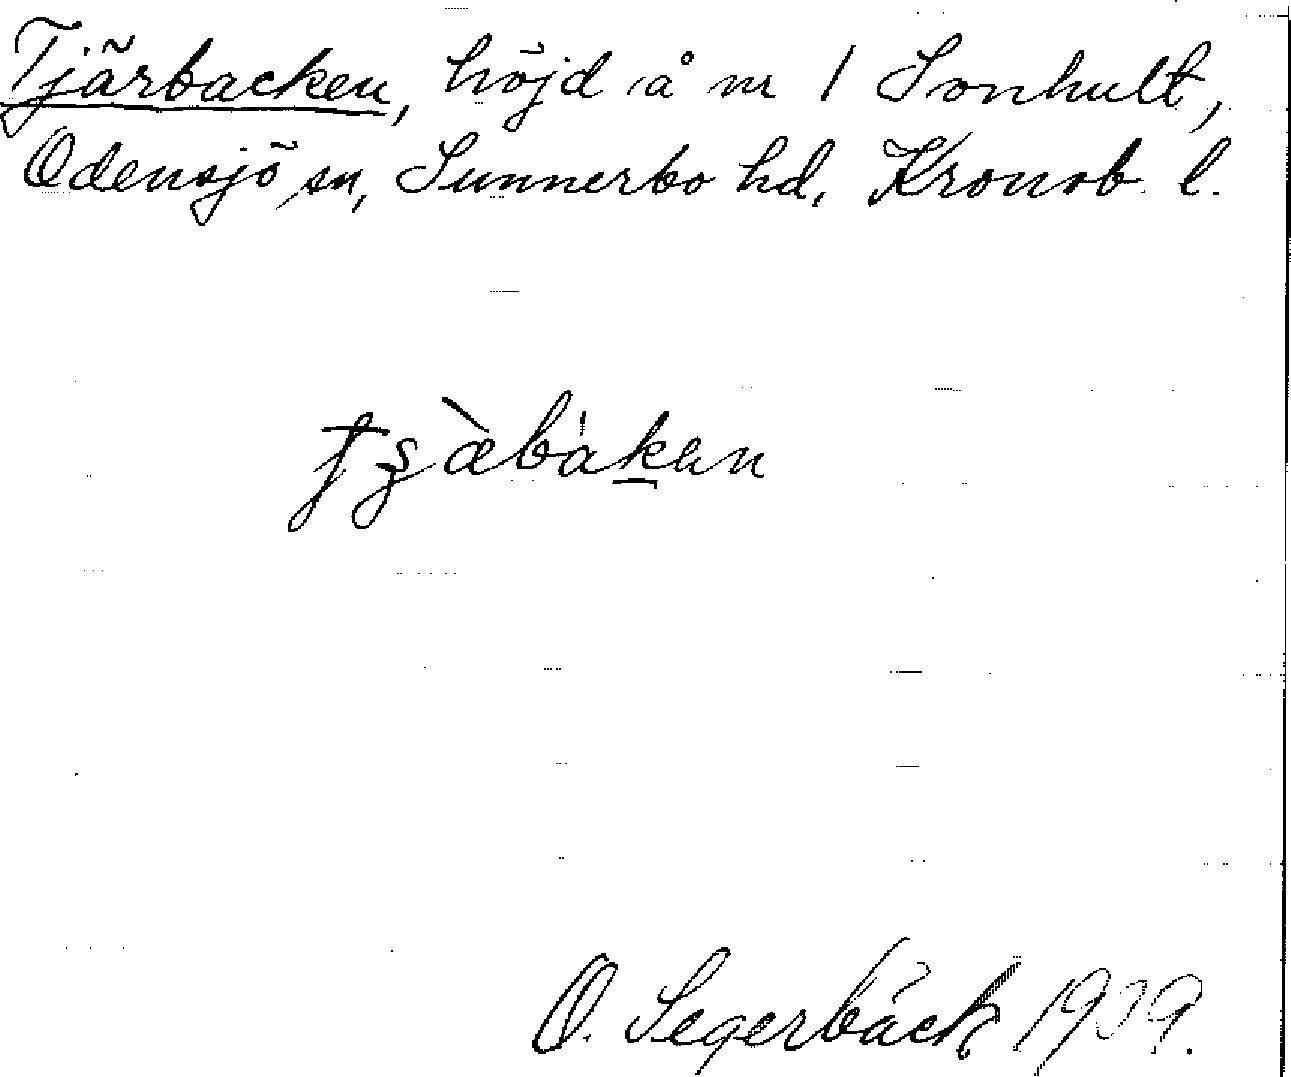 Tjärbacken, höjd å nr 1 Sonhult,
Odensjö sn, Sunnerbo hd, Kronob. l.
O. Segerbäck 1939.